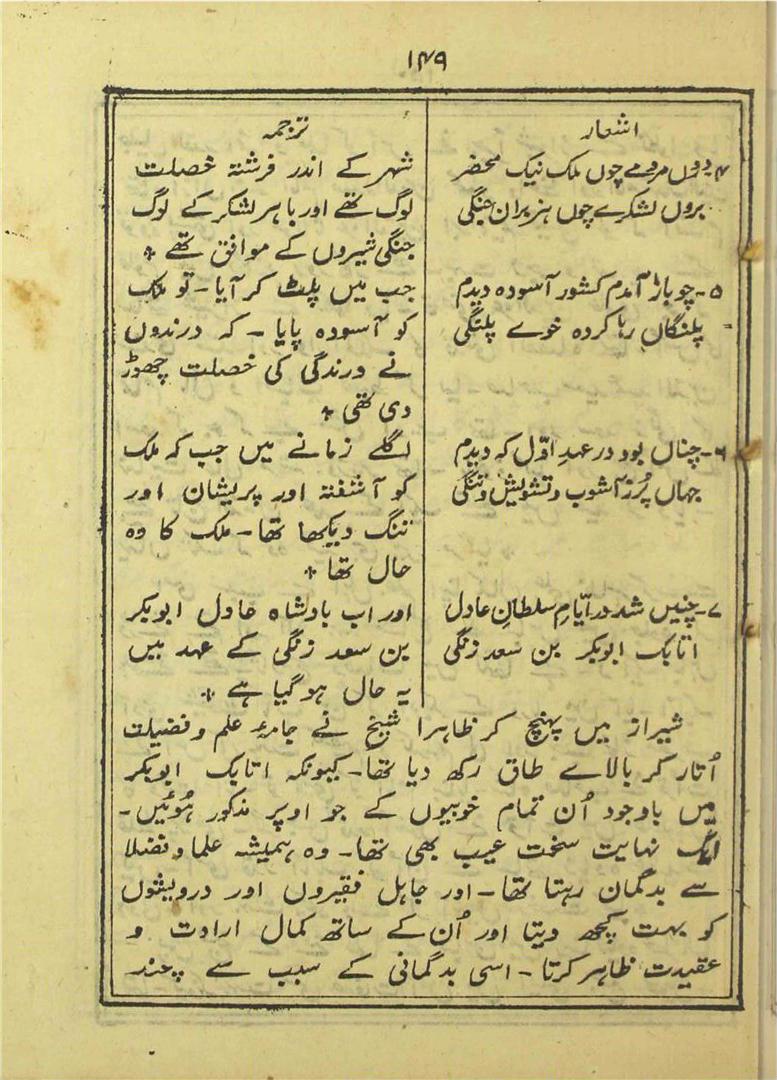 ۱۴۹
اشعار
ترجمہ
۴۔دروں مردمے چوں ملک نیک محضر
بروں لشکرے چوں ہزبران جنگی
شہر کے اندر فرشتہ خصلت
لوگ تھے اور باہر لشکر کے لوگ
جنگی شیروں کے موافق تھے ٭
۵۔چو باز آمدم کشور آسودہ دیدم
پلنگاں رہا کردہ خوے پلنگی
جب میں پلٹ کر آیا۔ تو ملک
کو آسودہ پایا ۔ کہ درندوں
نے درندگی کی خصلت چھوڑ
دی تھی ٭
۶۔چناں بود در عہدِ اوّل کہ دیدم
جہاں پُر ز آشوب و تشویش و تنگی
اگلے زمانے میں جب کہ ملک
کو آشفتہ اور پریشان اور
تنگ دیکھا تھا۔ ملک کا وہ
حال تھا ٭
۷۔چنیں شد در ایّامِ سلطانِ عادل
اتابک ابوبکر بن سعد زنگی
اور اب بادشاہ عادل ابوبکر
بن سعد زنگی کے عہد میں
یہ حال ہو گیا ہے ٭
شیراز میں پہنچ کر ظاہرا شیخ نے جامۂ علم و فضیلت
اُتار کر بالاے طاق رکھ دیا تھا۔ کیونکہ اتابک ابوبکر
میں باوجود اُن تمام خوبیوں کے جو اوپر مذکور ہُوئیں۔
ایک نہایت سخت عیب بھی تھا۔ وہ ہمیشہ علما و فضلا
سے بدگمان رہتا تھا۔ اور جاہل فقیروں اور درویشوں
کو بہت کچھ دیتا اور اُن کے ساتھ کمال ارادت و
عقیدت ظاہر کرتا ۔ اسی بدگمانی کے سبب سے چند